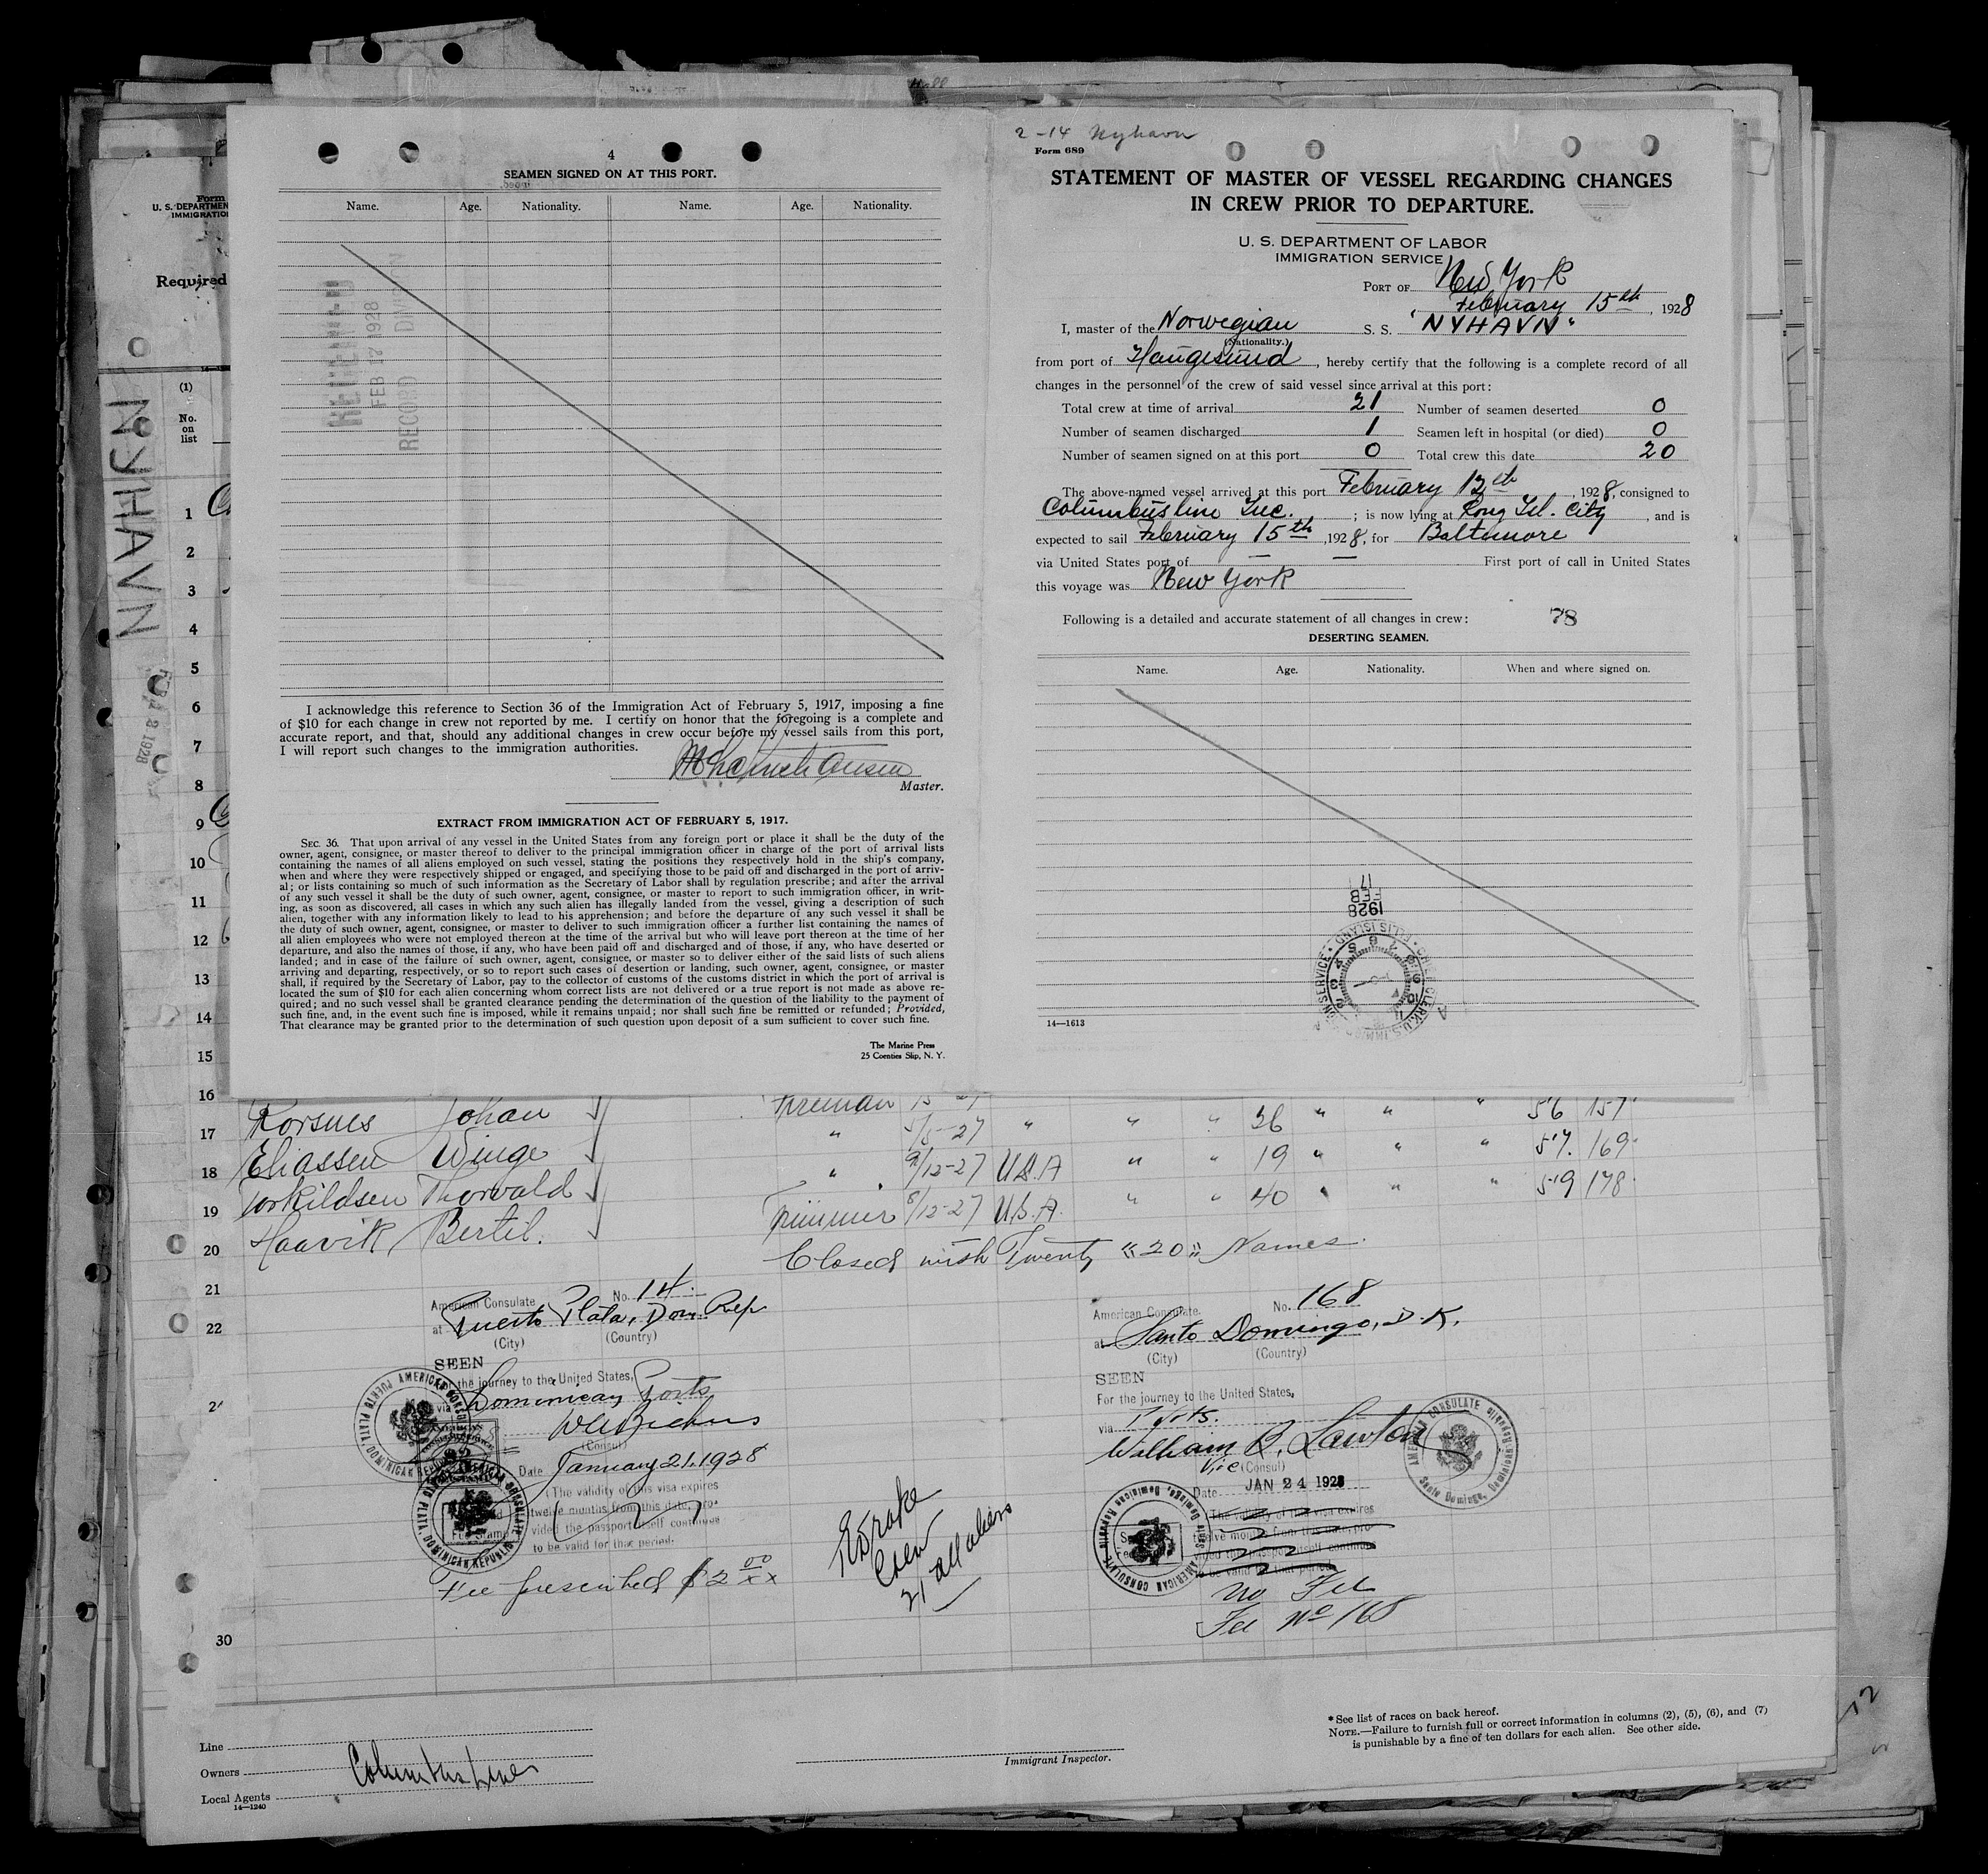 4
SEAMEN SIGNED ON AT THIS PORT.
Name. Age. Nationality. Name. Age. Nationality.
FEB 17 1928
RECORD DIVISION
I acknowledge this reference to Section 36 of the Immigration Act of February 5, 1917, imposing a fine
of $10 for each change in crew not reported by me. I certify on honor that the foregoing is a complete and
accurate report, and that, should any additional changes in crew occur before my vessel sails from this port,
I will report such changes to the immigration authorities.
Master.
EXTRACT FROM IMMIGRATION ACT OF FEBRUARY 5, 1917.
SEC. 36. That upon arrival of any vessel in the United States from any foreign port or place it shall be the duty of the
owner, agent, consignee, or master thereof to deliver to the principal immigration officer in charge of the port of arrival lists
containing the names of all aliens employed on such vessel, stating the positions they respectively hold in the ship's company,
when and where they were respectively shipped or engaged, and specifying those to be paid off and discharged in the port of arriv-
al; or lists containing so much of such information as the Secretary of Labor shall by regulation prescribe; and after the arrival
of any such vessel it shall be the duty of such owner, agent, consignee, or master to report to such immigration officer, in writ-
ing, as soon as discovered, all cases in which any such alien has illegally landed from the vessel, giving a description of such
alien, together with any information likely to lead to his apprehension; and before the departure of any such vessel it shall be
the duty of such owner, agent, consignee, or master to deliver to such immigration officer a further list containing the names of
all alien employees who were not employed thereon at the time of the arrival but who will leave port thereon at the time of her
departure, and also the names of those, if any, who have been paid off and discharged and of those, if any, who have deserted or
landed; and in case of the failure of such owner, agent, consignee, or master so to deliver either of the said lists of such aliens
arriving and departing, respectively, or so to report such cases of desertion or landing, such owner, agent, consignee, or master
shall, if required by the Secretary of Labor, pay to the collector of customs of the customs district in which the port of arrival is
located the sum of $10 for each alien concerning whom correct lists are not delivered or a true report is not made as above re-
quired; and no such vessel shall be granted clearance pending the determination of the question of the liability to the payment of
such fine, and, in the event such fine is imposed, while it remains unpaid; nor shall such fine be remitted or refunded; Provided,
That clearance may be granted prior to the determination of such question upon deposit of a sum sufficient to cover such fine.
The Marine Press
25 Coenties Slip, N. Y.
2-14 Nyhavn
Form 689
STATEMENT OF MASTER OF VESSEL REGARDING CHANGES
IN CREW PRIOR TO DEPARTURE.
U. S. DEPARTMENT OF LABOR
IMMIGRATION SERVICE
PORT OF New York
February 15th, 1928
I, master of the Norwegian S. S. "NYHAVN"
(Nationality.)
from port of Haugesund, hereby certify that the following is a complete record of all
changes in the personnel of the crew of said vessel since arrival at this port:
Total crew at time of arrival 21 Number of seamen deserted 0
Number of seamen discharged 1 Seamen left in hospital (or died) 0
Number of seamen signed on at this port 0 Total crew this date 20
The above-named vessel arrived at this port February 12th, 1928, consigned to
Columbus line Inc.; is now lying at Long Isl. City, and is
expected to sail February 15th, 1928, for Baltimore
via United States port of — — First port of call in United States
this voyage was New York
Following is a detailed and accurate statement of all changes in crew: 78
DESERTING SEAMEN.
Name. Age. Nationality. When and where signed on.
17
FEB
1928
14—1613
Form
U. S. DEPARTMEN
IMMIGRATIO
Required
NYHAVN
(1)
No.
on
list
1
2
3
4
5
6
7
8
9
10
11
12
13
14
15
16
17
18
19
20
21
22
30
Korsnes Johan Fireman
Eliassen Winge " 5/5-27 " " " 36 " " " 5'6 157
Torkildsen Thorvald " 9/12-27 U.S.A " " 19 " " " 5'7. 169
Haavik Bertil. Trimmer 8/12-27 U.S.A. " " 40 " " " 5'9 178
Closed with Twenty "20" Names.
American Consulate No. 14.
at Puerto Plata, Dom. Rep.
(City) (Country)
SEEN
For the journey to the United States,
via Dominican Ports
(Consul)
Date January 21. 1928
The validity of this visa expires
twelve months from this date, pro-
vided the passport itself continues
to be valid for that period.
Fee prescribed $2 00/xx
PUERTO PLATA, DOMINICAN REPUBLIC AMERICAN CONSULATE
Crew
21 all aliens
American Consulate. No. 168
at Santo Domingo, D.R.
(City) (Country)
SEEN
For the journey to the United States,
via Ports.
William B. Lawton
Vice (Consul)
Date JAN 24 1928
The validity of this visa expires
twelve months from this date, pro-
vided the passport itself continues
to be valid for that period.
No Fee
Fee No 168
AMERICAN CONSULATE Santo Domingo, Dominican Republic
Line
Owners Columbus Line
Local Agents
14—1240
Immigrant Inspector.
* See list of races on back hereof.
NOTE.—Failure to furnish full or correct information in columns (2), (5), (6), and (7)
is punishable by a fine of ten dollars for each alien. See other side.